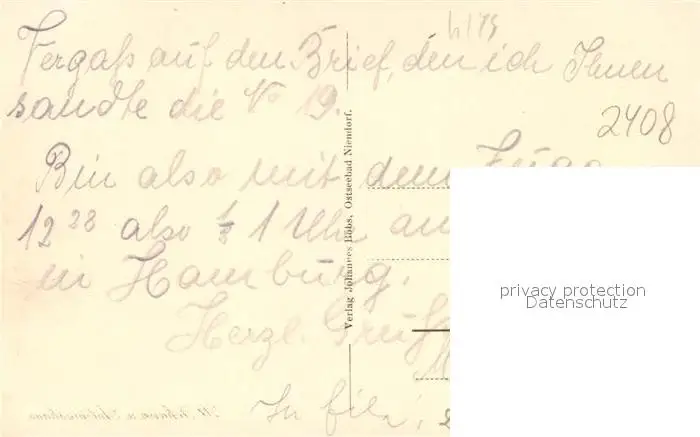 Vergaß auf den Brief, den ich Ihnen
sandte die No 19.
2408
Bin also mit dem Zuge
12 28 also ½ 1 Uhr an
in Hamburg.
Herzl. Grüße
In
Verlag Johannes Böbs, Ostseebad Niendorf.
privacy protection
Datenschutz